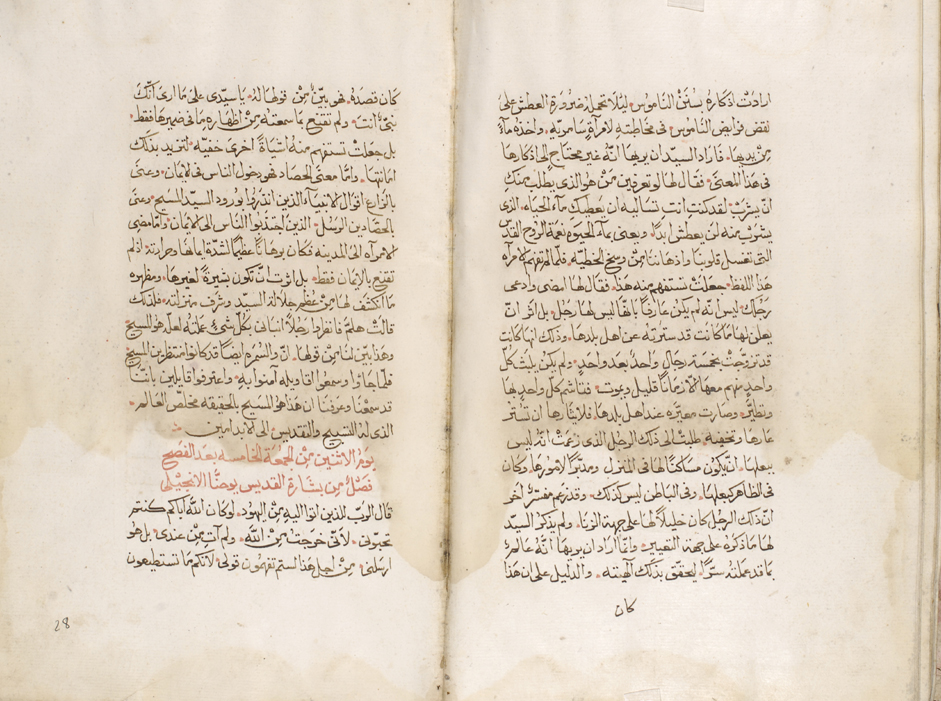 ارادت اذكاره بسنن الناموس ليلا تحمله ضرورة العطش على
نقض فرايض الناموس في مخاطبته لامرأة سامرية واخذه مآء
من يديها فاراد السيد ان يريها انه غير محتاج الى اذكارها
في هذا المعنى فقال لها لو تعرفين من هو الذي يطلب منك
ان يشرب لقد كنت انت تساليه ان يعطيك مآء الحياه الذي
يشرب منه لن يعطش ابدا ويعني بمآء الحيوه نعمة الروح القدس
التي تغسل قلوبنا واذهاننا من وسخ الخطيه فلما لم تفهم الامرأه
هذا اللفظ جعلت تستفهم منه هذا فقال لها امضي وادعي
رجلك ليس انه لم يكن عارفا بانها ليس لها رجل بل اثر ان
يعلن لها ما كانت قد سترته عن اهل بلدها وذلك انها كانت
قد تزوجت بخمسة رجال واحد بعد واحد ولم يكن يلبث كل
واحد منهم معها الا زمانا قليل ويموت فتاشم كل واحد بها
وتطير وصارت معيره عند اهل بلدها فلايثارها ان تستر
عارها وتخفيه طلبت الى ذلك الرجل الذي زعمت انه ليس
ببعلها ان يكون مساكنا لها في المنزل ومدبرا لامورها وكان
في الظاهر كبعلها وفي الباطن ليس كذلك وقد زعم مفسر اخر
ان ذلك الرجل كان خليلا لها على جهة الزنا ولم يذكر السيد
لها ما ذكره على جهة التعيير وانما اراد ان يريها انه عالم
بما قد عملته سرا ليحقق بذلك الهيته والدليل على ان هذا
كان
كان قصده فهو بين من قولها له يا سيدي على ما ارى انك
نبي انت ولم تقتنع بما سمعته من اظهاره ما في ضميرها فقط
بل جعلت تستفهم منه اشيآء اخرى خفيه لتزيد بذلك
امانتها واما معنى الحصاد فهو دخول الناس في الايمان وعنى
بالزارع اقوال الانبيآء الذين انذروا بورود السيد المسيح وعنى
بالحصادين الرسل الذين اجتذبوا الناس الى الايمان واما مضي
الامرأه الى المدينه فكان برهانا عظيما لشدة ايمانها وحرارته اذ لم
تقتنع بالايمان فقط بل اثرت ان تكون بشيرة لغيرها ومظهره
ما اكشف لها من عظم جلالة السيد وشرف منزلته فلذلك
قالت هلم فانظروا رجلا انباني بكل شي عملته لعله هو المسيح
وهذا بين لنا من قولها ان والسمره ايضا قد كانوا منتظرين المسيح
فلما جاؤا وسمعوا اقاويله آمنوا به واعترفوا قايلين باننا
قد سمعنا وعرفنا ان هذا هو المسيح بالحقيقه مخلص العالم
الذي له التسبيح والتقديس الى الابد امين
يوم الاثنين من الجمعة الخامسه بعد الفصح
فصل من بشارة القديس يوحنا الانجيلي
قال الرب للذين اتوا اليه من اليهود لو كان الله اباكم كنتم
تحبوني لاني خرجت من الله ولم آت من عندي بل هو
ارسلني من اجل هذا لستم تفهمون قولي لانكم ما تستطيعون
28